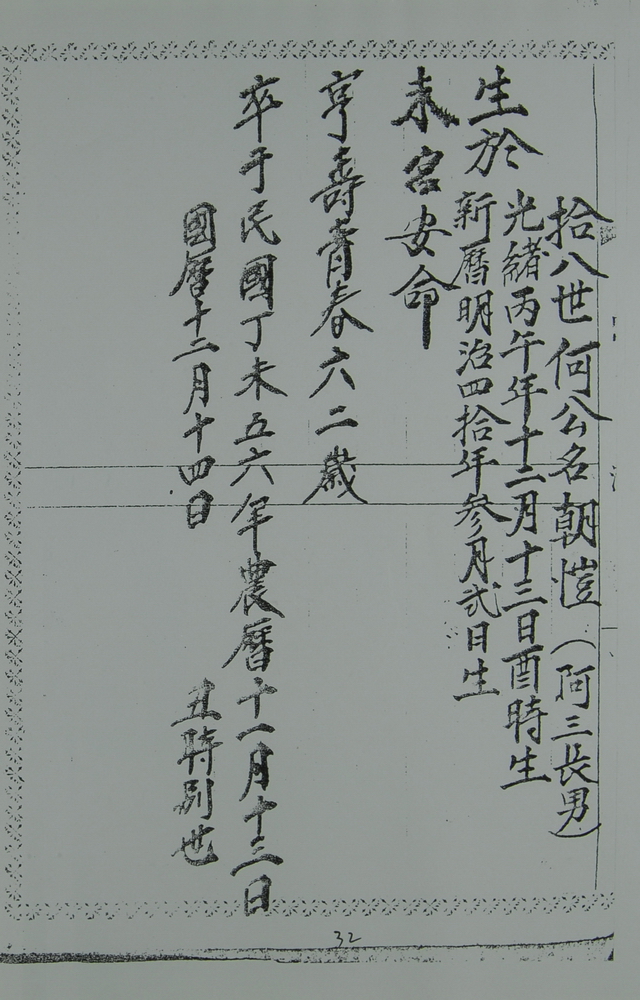 拾八世何公名朝愷（阿三長男）
生於
光緒丙午年十二月十三日酉時生
新曆明治四拾年参月弍日生
未宮安命
享壽青春六二歲
卒于民國丁未五六年農曆十一月十三日
國曆十二月十四日
丑時別世
32